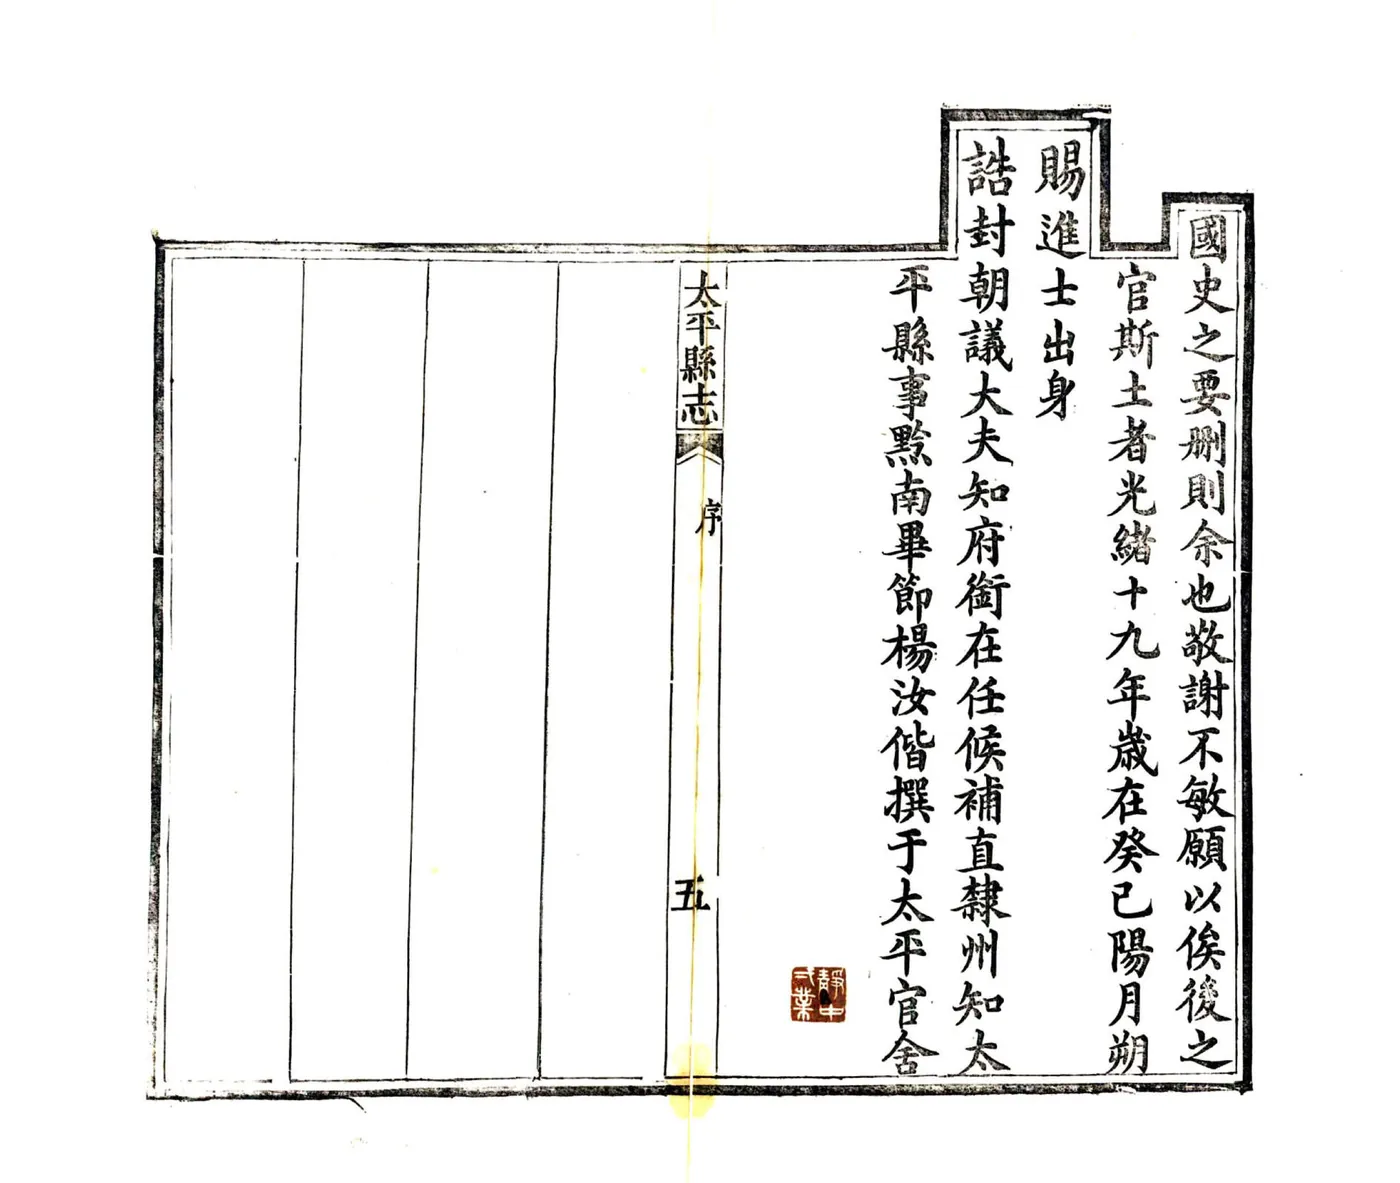 國史之要刪則余也敬謝不敏願以俟後之
官斯土者光緒十九年歲在癸巳陽月朔
賜進士出身
誥封朝議大夫知府銜在任候補直隸州知太
平縣事黔南畢節楊汝偕撰于太平官舍
太平縣志
序
五